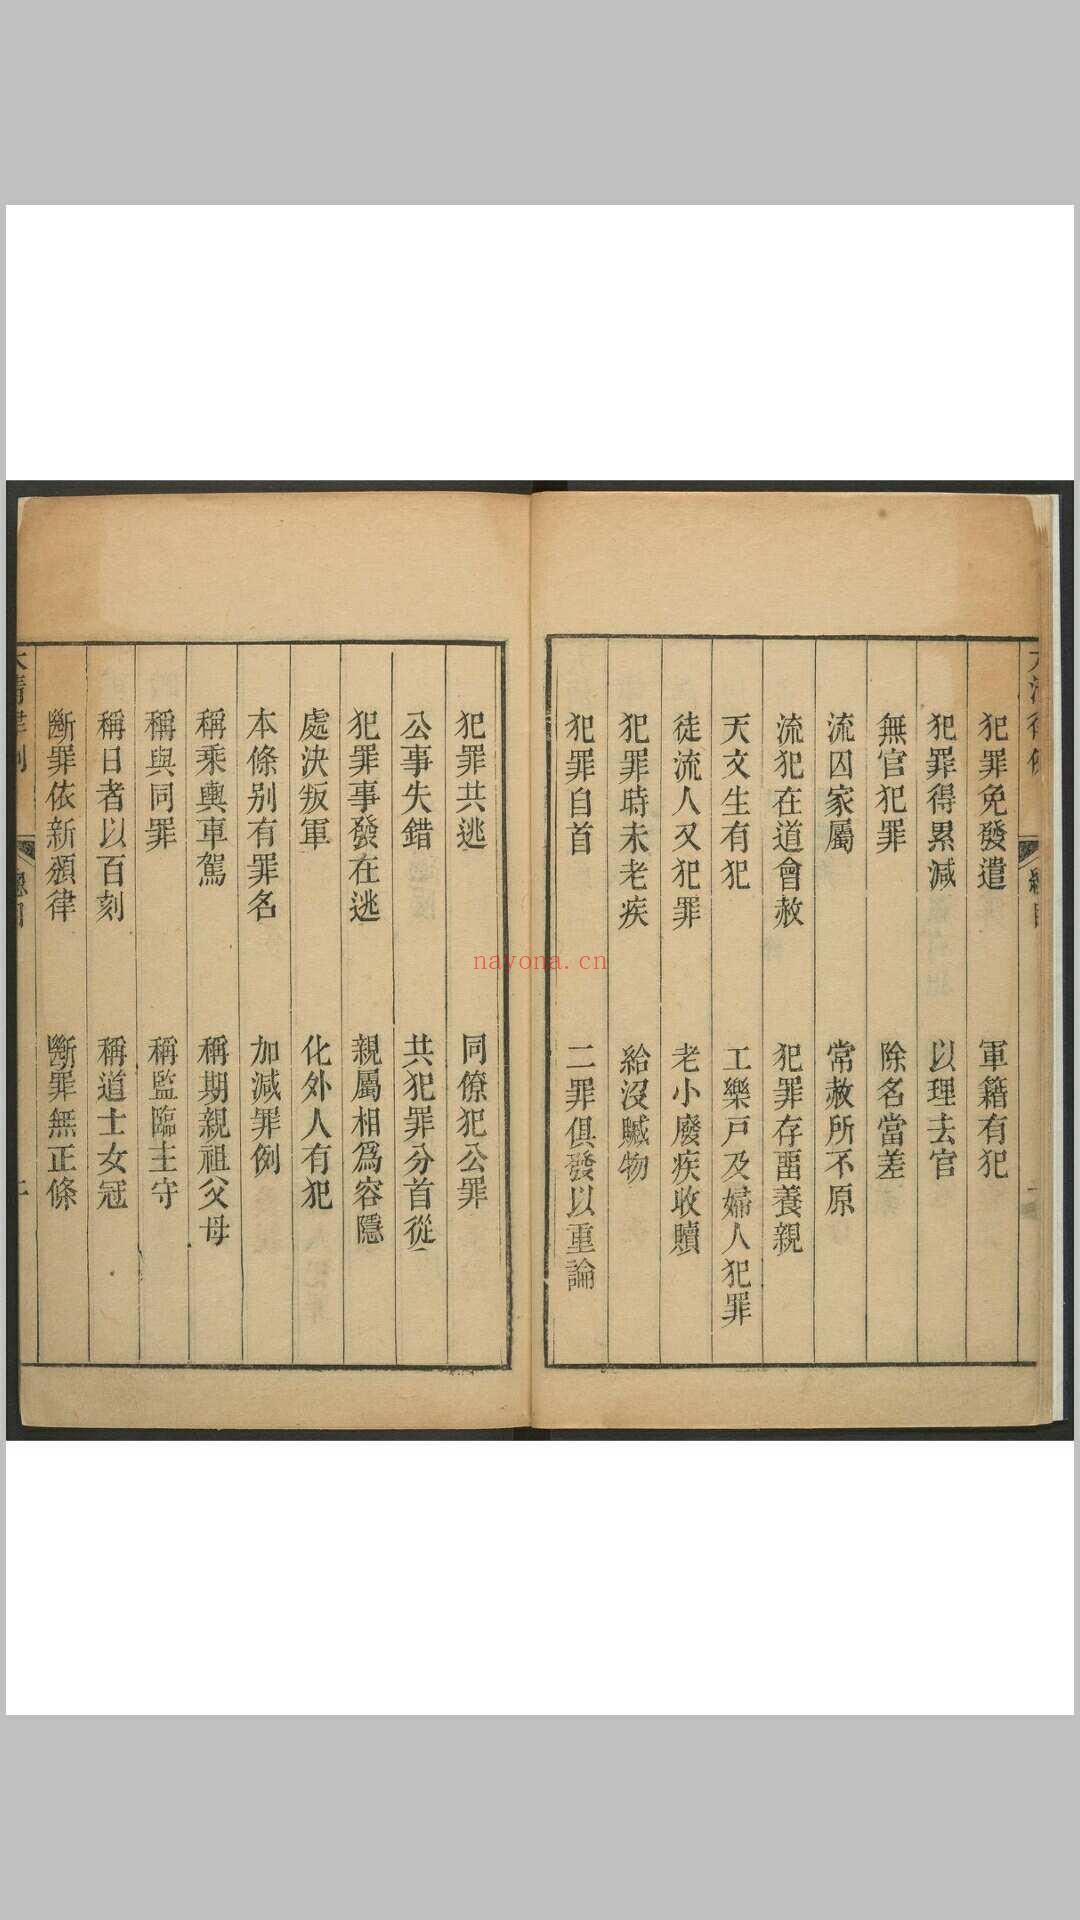 犯罪免發遣 軍籍有犯
犯罪得累減 以理去官
無官犯罪 除名當差
流囚家屬 常赦所不原
流犯在道會赦 犯罪存畱養親
天文生有犯 工樂戸及婦人犯罪
徒流人又犯罪 老小廢疾收贖
犯罪時未老疾 給沒贓物
犯罪自首 二罪俱發以重論
犯罪共逃 同僚犯公罪
公事失錯 共犯罪分首從
犯罪事發在逃 親屬相爲容隱
處決叛軍 化外人有犯
本條别有罪名 加減罪例
稱乘輿車駕 稱期親祖父母
稱與同罪 稱監臨主守
稱日者以百刻 稱道士女冠
斷罪依新頒律 斷罪無正條
nayona.cn